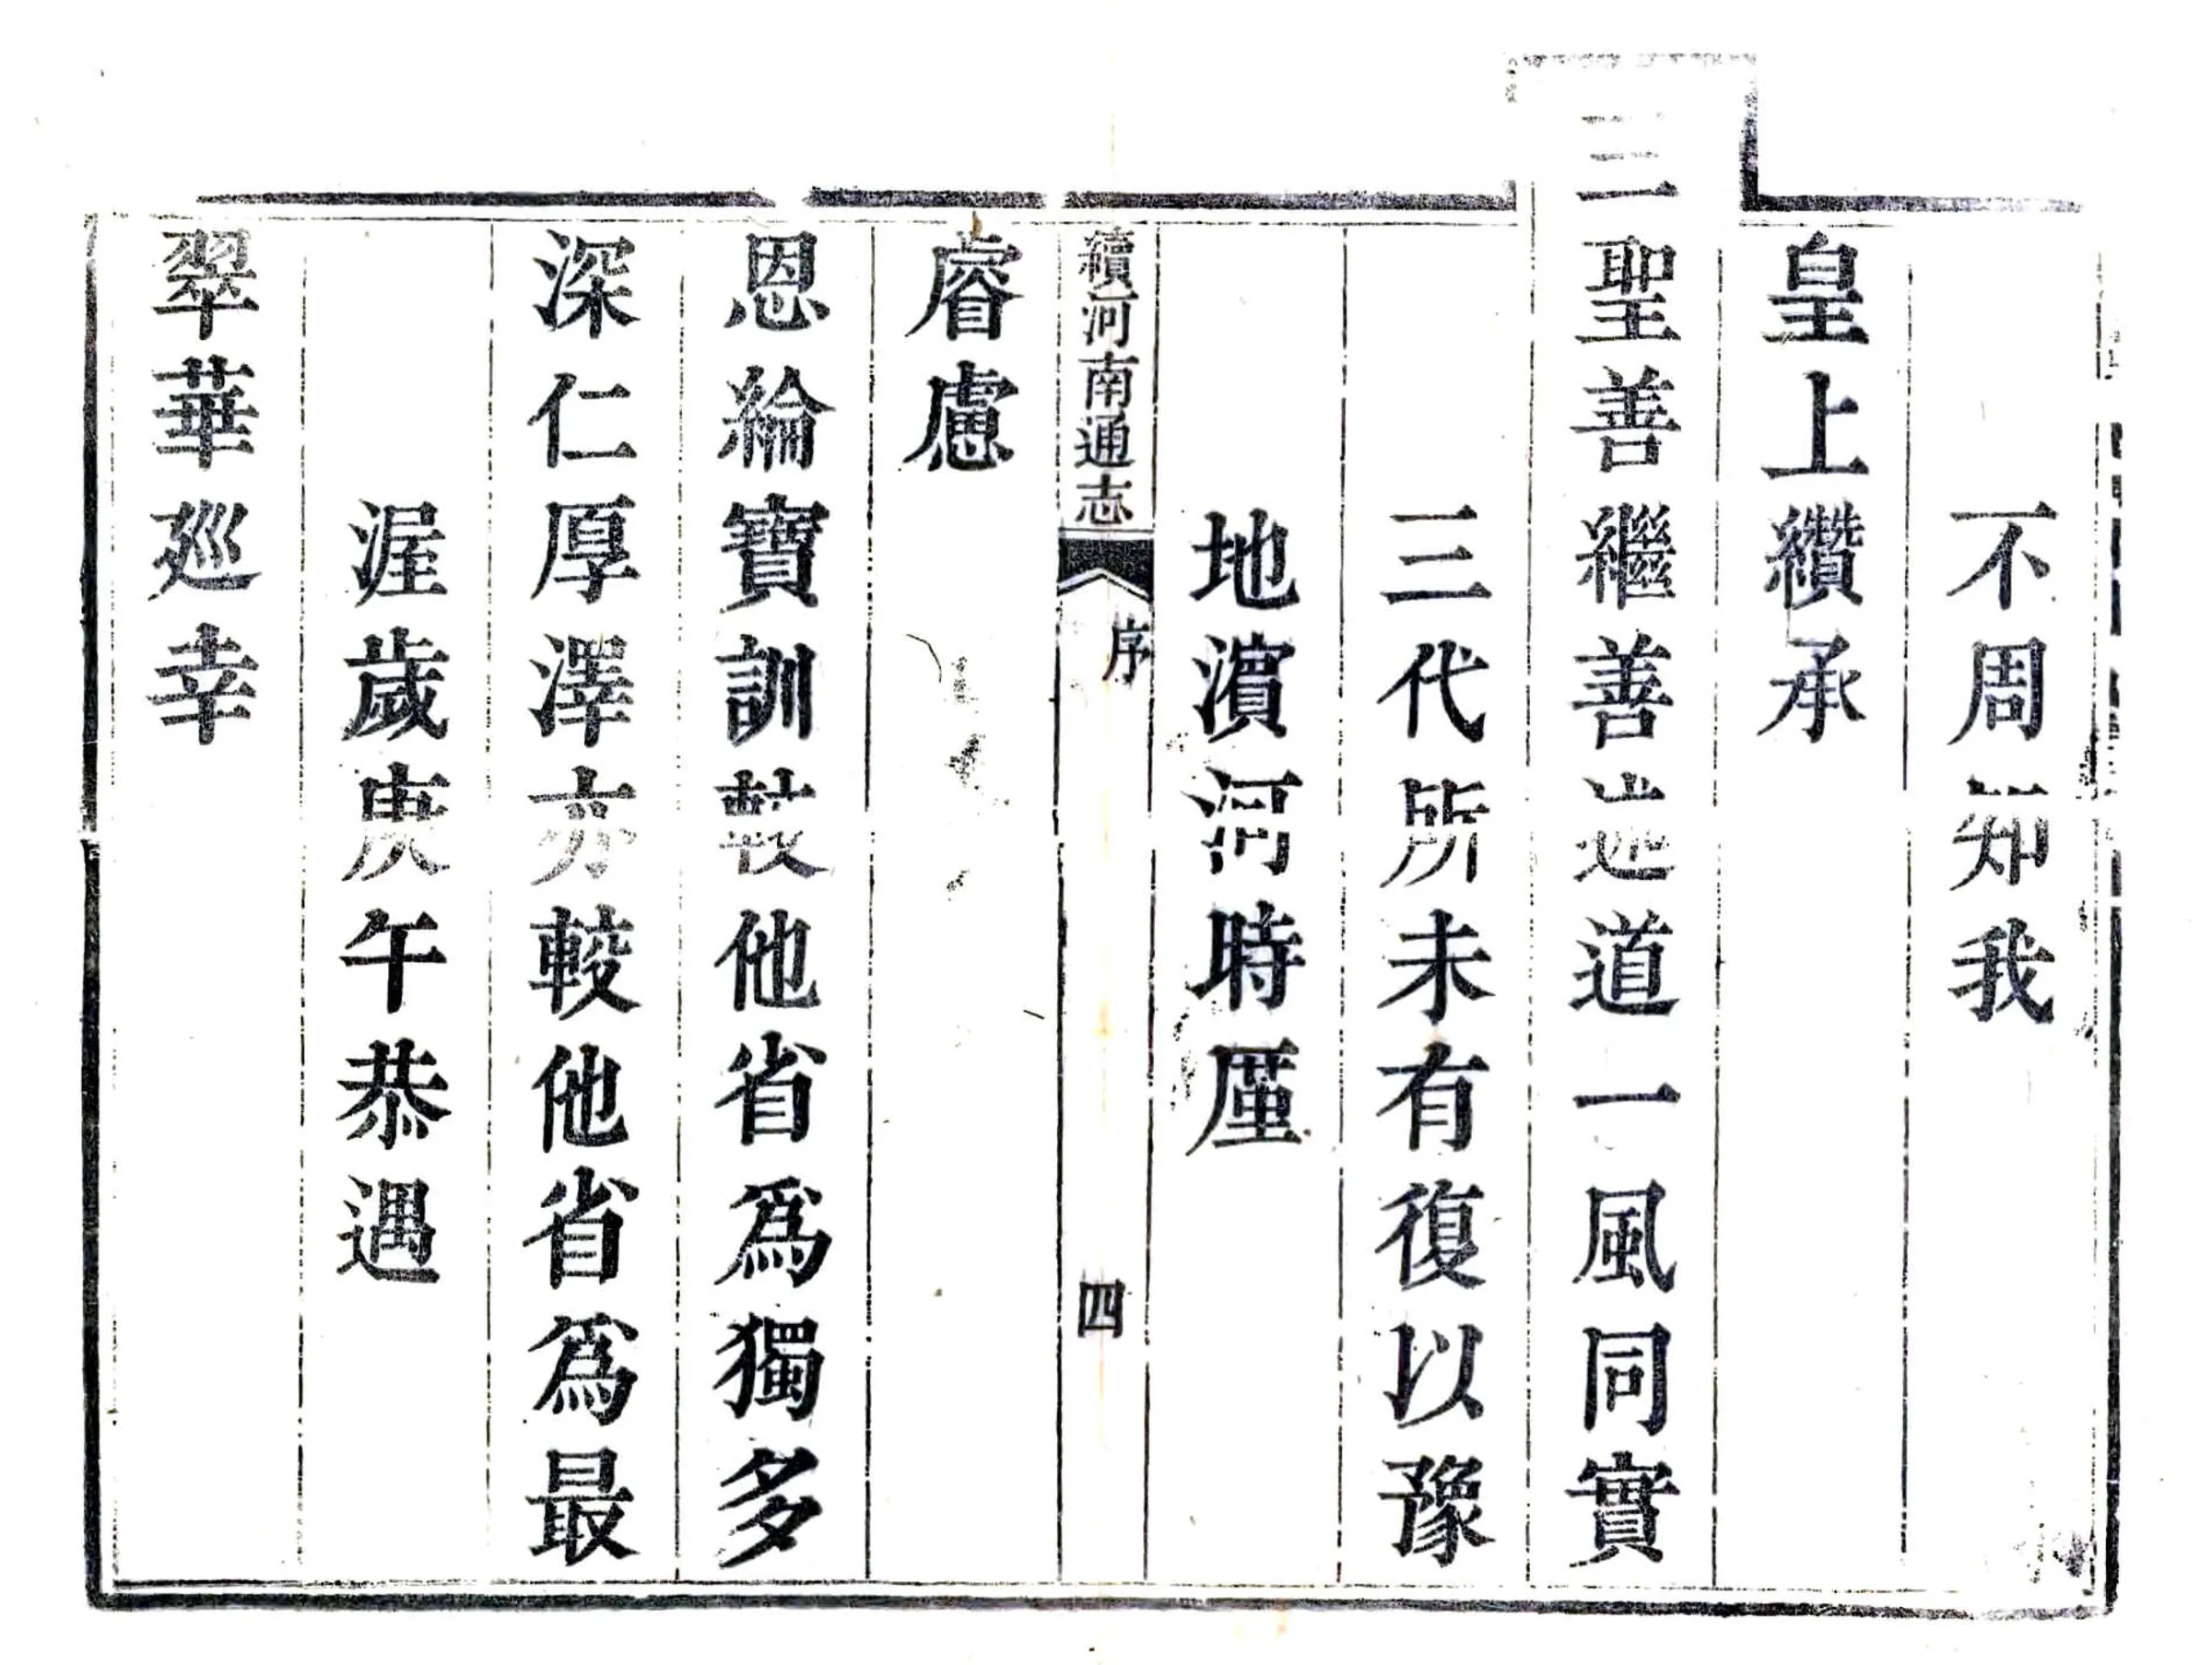 不周知我
皇上纘承
三聖善繼善述道一風同實
三代所未有復以豫
地濵河時厪
續河南通志
序
四
睿慮
恩綸寶訓較他省爲獨多
深仁厚澤亦較他省爲最
渥歲庚午恭遇
翠華廵幸